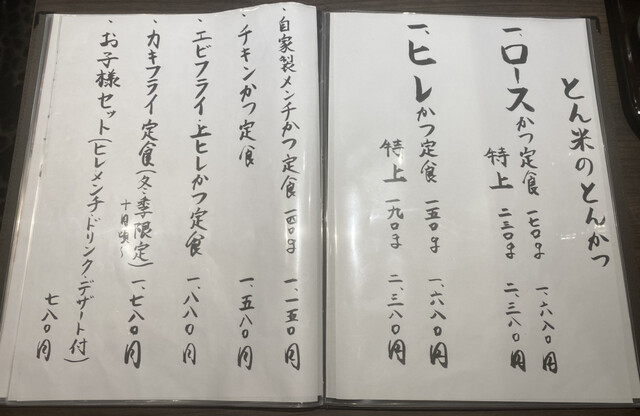 とん米のとんかつ
一、ロースかつ定食 一七〇g 一、六八〇円
特上 二三〇g 二、三八〇円
一、ヒレかつ定食 一五〇g 一、六八〇円
特上 一九〇g 二、三八〇円
・自家製メンチかつ定食 一四〇g 一、一五〇円
・チキンかつ定食 一、五八〇円
・エビフライ・上ヒレかつ定食 一、八八〇円
・カキフライ定食(冬季限定) 一、七八〇円
十月頃〜
・お子様セット(ヒレメンチ・ドリンク・デザート付)
七八〇円